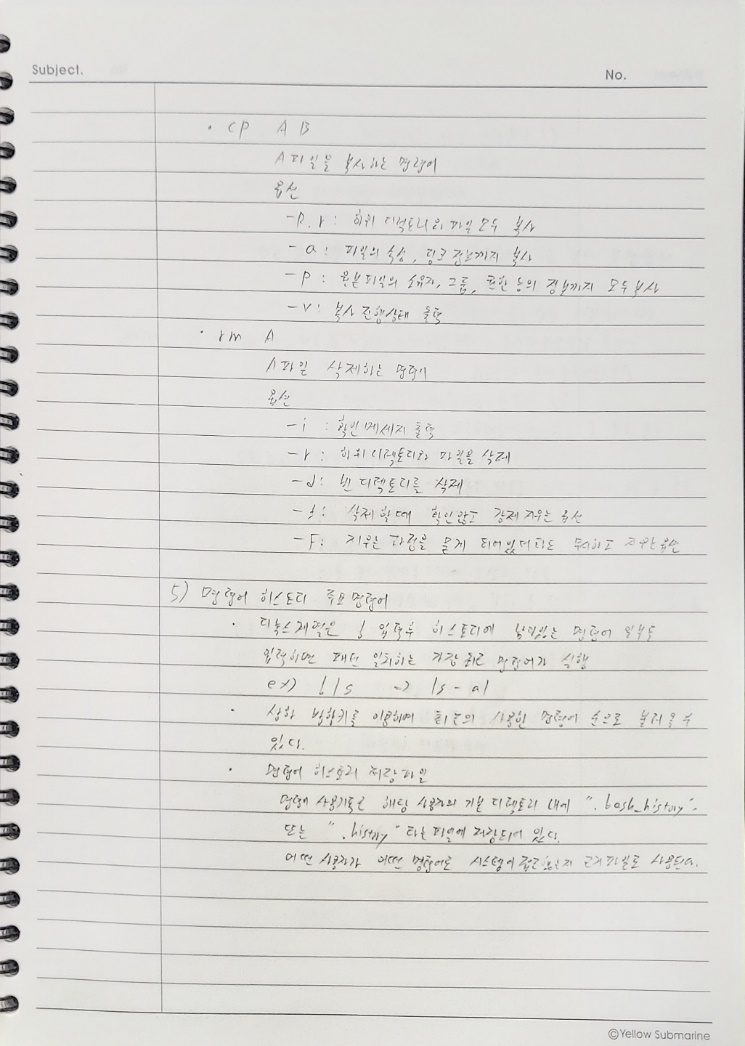 Subject.
No.
· cp A B
A파일을 복사하는 명령어
옵션
-R, r : 하위 디렉토리와 파일 모두 복사
-a : 파일의 속성, 링크 정보까지 복사
-p : 원본파일의 소유자, 그룹, 권한 등의 정보까지 모두 복사
-v : 복사 진행상태 출력
· rm A
A파일 삭제하는 명령어
옵션
-i : 확인 메세지 출력
-r : 하위 디렉토리와 파일을 삭제
-d : 빈 디렉토리를 삭제
-f : 삭제할때 확인않고 강제 지우는 옵션
-F : 지우는 과정을 묻게 되어있더라도 무시하고 지우는 옵션
5) 명령어 히스토리 주요 명령어
· 리눅스 계열은 ! 입력후 히스토리에 남아있는 명령어 일부를
입력하면 패턴 일치하는 가장 최근 명령어가 실행
ex) !ls → ls -al
· 상하 방향키를 이용하여 최근의 사용한 명령어 순으로 불러올 수
있다.
· 명령어 히스토리 저장파일
명령어 사용기록은 해당 사용자의 기본 디렉토리 내에 ".bash_history".
또는 ".history" 라는 파일에 저장되어 있다.
어떤 사용자가 어떤 명령어로 시스템에 접근 근거파일로 사용된다.
©Yellow Submarine